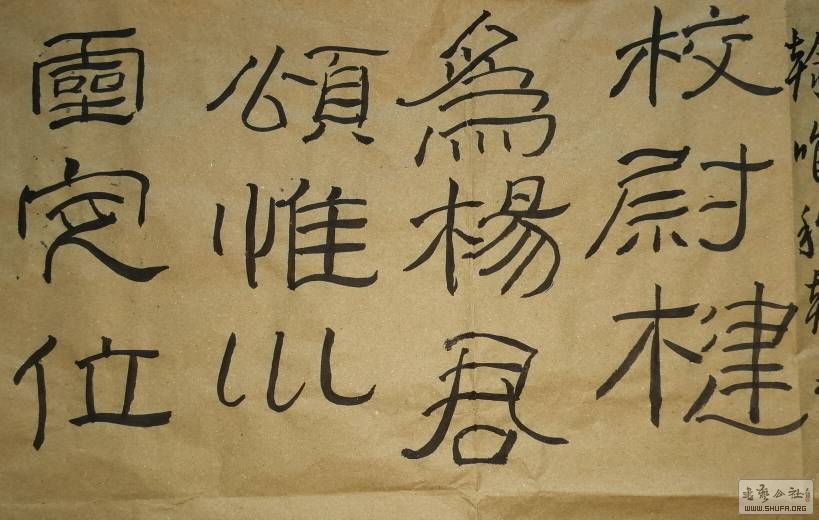 校尉楗
爲楊君
頌惟巛
靈定位
公社
WWW.SHUFA.ORG